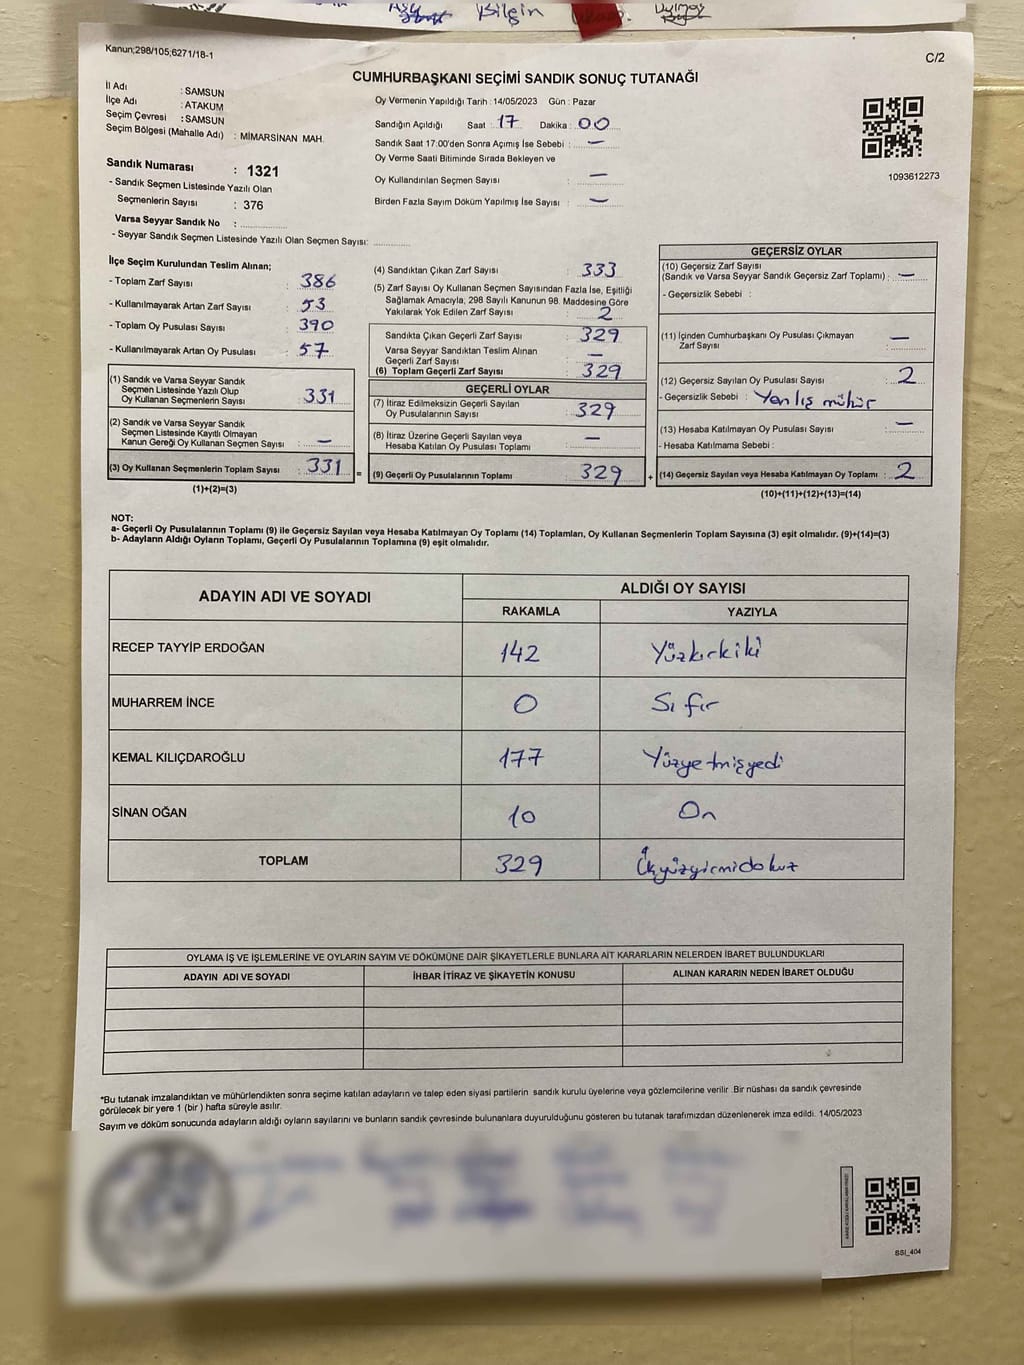 Bilgin
Kanun;298/105;6271/18-1
C/2
CUMHURBAŞKANI SEÇİMİ SANDIK SONUÇ TUTANAĞI
İl Adı : SAMSUN
İlçe Adı : ATAKUM
Seçim Çevresi : SAMSUN
Seçim Bölgesi (Mahalle Adı) : MİMARSİNAN MAH.
Sandık Numarası : 1321
- Sandık Seçmen Listesinde Yazılı Olan
Seçmenlerin Sayısı : 376
Varsa Seyyar Sandık No :
- Seyyar Sandık Seçmen Listesinde Yazılı Olan Seçmen Sayısı:
Oy Vermenin Yapıldığı Tarih : 14/05/2023 Gün : Pazar
Sandığın Açıldığı Saat : 17 Dakika : 00
Sandık Saat 17:00'den Sonra Açımış İse Sebebi : —
Oy Verme Saati Bitiminde Sırada Bekleyen ve
Oy Kullandırılan Seçmen Sayısı : —
Birden Fazla Sayım Döküm Yapılmış İse Sayısı : —
1093612273
İlçe Seçim Kurulundan Teslim Alınan;
- Toplam Zarf Sayısı : 386
- Kullanılmayarak Artan Zarf Sayısı : 53
- Toplam Oy Pusulası Sayısı : 390
- Kullanılmayarak Artan Oy Pusulası : 57
(1) Sandık ve Varsa Seyyar Sandık
Seçmen Listesinde Yazılı Olup
Oy Kullanan Seçmenlerin Sayısı : 331
(2) Sandık ve Varsa Seyyar Sandık
Seçmen Listesinde Kayıtlı Olmayan
Kanun Gereği Oy Kullanan Seçmen Sayısı : —
(3) Oy Kullanan Seçmenlerin Toplam Sayısı : 331
(1)+(2)=(3)
=
(4) Sandıktan Çıkan Zarf Sayısı : 333
(5) Zarf Sayısı Oy Kullanan Seçmen Sayısından Fazla İse, Eşitliği
Sağlamak Amacıyla, 298 Sayılı Kanunun 98. Maddesine Göre
Yakılarak Yok Edilen Zarf Sayısı : 2
Sandıkta Çıkan Geçerli Zarf Sayısı : 329
Varsa Seyyar Sandıktan Teslim Alınan
Geçerli Zarf Sayısı : —
(6) Toplam Geçerli Zarf Sayısı : 329
GEÇERLİ OYLAR
(7) İtiraz Edilmeksizin Geçerli Sayılan
Oy Pusulalarının Sayısı : 329
(8) İtiraz Üzerine Geçerli Sayılan veya
Hesaba Katılan Oy Pusulası Toplamı : —
(9) Geçerli Oy Pusulalarının Toplamı : 329
+
GEÇERSİZ OYLAR
(10) Geçersiz Zarf Sayısı
(Sandık ve Varsa Seyyar Sandık Geçersiz Zarf Toplamı) : —
- Geçersizlik Sebebi :
(11) İçinden Cumhurbaşkanı Oy Pusulası Çıkmayan
Zarf Sayısı : —
(12) Geçersiz Sayılan Oy Pusulası Sayısı : 2
- Geçersizlik Sebebi : Yanlış mühür
(13) Hesaba Katılmayan Oy Pusulası Sayısı : —
- Hesaba Katılmama Sebebi :
(14) Geçersiz Sayılan veya Hesaba Katılmayan Oy Toplamı : 2
(10)+(11)+(12)+(13)=(14)
NOT:
a- Geçerli Oy Pusulalarının Toplamı (9) ile Geçersiz Sayılan veya Hesaba Katılmayan Oy Toplamı (14) Toplamları, Oy Kullanan Seçmenlerin Toplam Sayısına (3) eşit olmalıdır. (9)+(14)=(3)
b- Adayların Aldığı Oyların Toplamı, Geçerli Oy Pusulalarının Toplamına (9) eşit olmalıdır.
ADAYIN ADI VE SOYADI ALDIĞI OY SAYISI
RAKAMLA YAZIYLA
RECEP TAYYİP ERDOĞAN 142 Yüzkırkiki
MUHARREM İNCE 0 Sıfır
KEMAL KILIÇDAROĞLU 177 Yüzyetmişyedi
SİNAN OĞAN 10 On
TOPLAM 329 Üçyüzyirmidokuz
OYLAMA İŞ VE İŞLEMLERİNE VE OYLARIN SAYIM VE DÖKÜMÜNE DAİR ŞİKAYETLERLE BUNLARA AİT KARARLARIN NELERDEN İBARET BULUNDUKLARI
ADAYIN ADI VE SOYADI İHBAR İTİRAZ VE ŞİKAYETİN KONUSU ALINAN KARARIN NEDEN İBARET OLDUĞU
*Bu tutanak imzalandıktan ve mühürlendikten sonra seçime katılan adayların ve talep eden siyasi partilerin sandık kurulu üyelerine veya gözlemcilerine verilir .Bir nüshası da sandık çevresinde
görülecek bir yere 1 (bir ) hafta süreyle asılır.
Sayım ve döküm sonucunda adayların aldığı oyların sayılarını ve bunların sandık çevresinde bulunanlara duyurulduğunu gösteren bu tutanak tarafımızdan düzenlenerek imza edildi. 14/05/2023
SSI_404